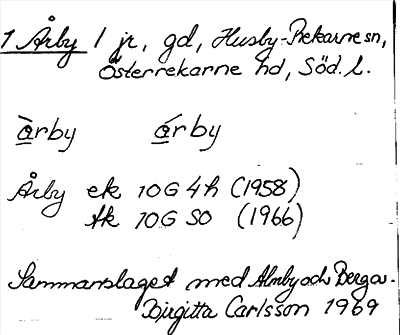 1 Årby 1 jr, gd, Husby-Rekarne sn,
Österrekarne hd, Söd. l.
àrby árby
Årby ek 10G 4h (1958)
tk 10G SO (1966)
Sammanslaget med Almby och Berga.
Birgitta Carlsson 1969